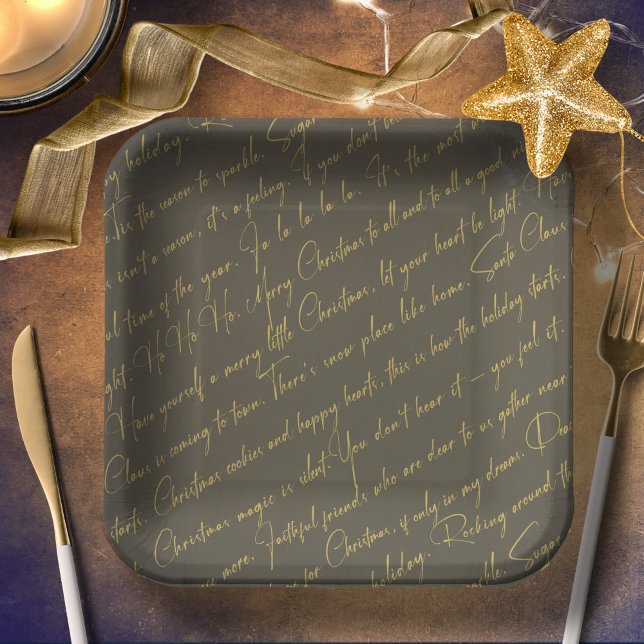 ry holiday. Ro Sugar
e. 'Tis the season to sparkle. Sugar If you don't be
s isn't a season, it's a feeling. It's the most w
ul time of the year. Fa la la la la. Merry Christmas to all and to all a good n
ight. Ho Ho Ho. Merry Christmas, let your heart be light. Have
Have yourself a merry little Christmas, let your heart be light. Santa Claus
Claus is coming to town. There's snow place like home. Santa Claus
starts. Christmas cookies and happy hearts, this is how the holiday starts.
Christmas magic is silent. You don't hear it — you feel it.
re more. Faithful friends who are dear to us gather near
for Christmas, if only in my dreams. Peac
holiday. Rocking around the
rkle. Sugar